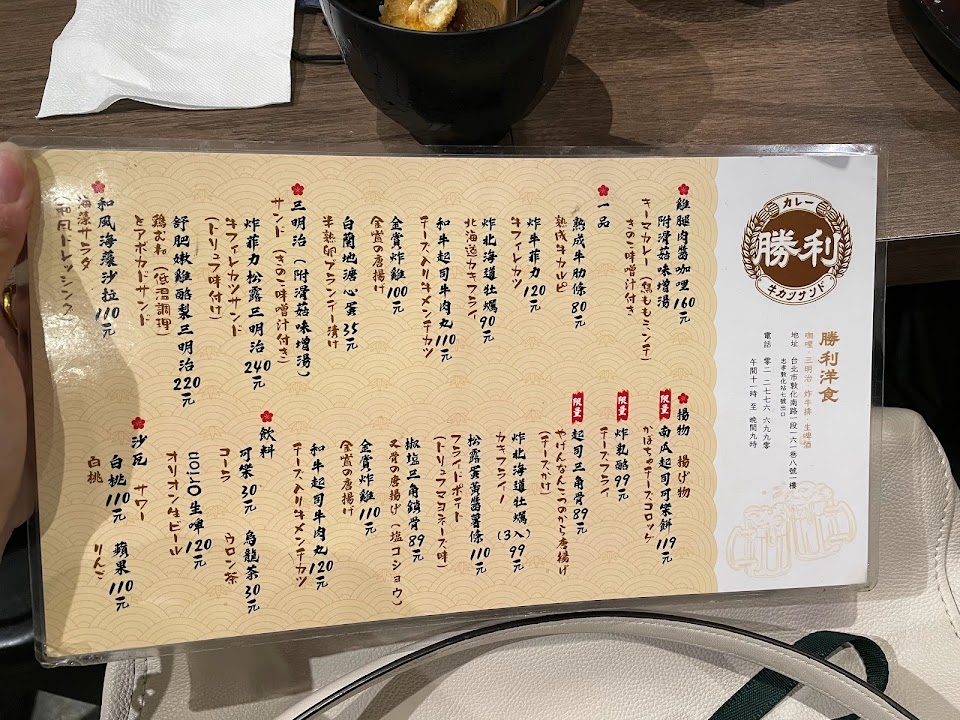 カレー
勝利
牛カツサンド
勝利洋食
咖哩·三明治·炸牛排 生啤酒
地址 台北市敦化南路一段一六一巷八號一樓
忠孝敦化站七號出口
電話 零二 二七七六 六九九零
午間十一時 至 晚間九時
雞腿肉醬咖哩 160元
附滑菇味增湯
キーマカレー（鶏ももミンチ）
きのこ味噌汁付き
一品
熟成牛肋條 80元
熟成牛カルビ
炸牛菲力 120元
牛フィレカツ
炸北海道牡蠣 90元
北海道カキフライ
和牛起司牛肉丸 110元
チーズ入り牛メンチカツ
金賞炸雞 100元
金賞の唐揚げ
白蘭地溏心蛋 35元
半熟卵ブランデー漬け
三明治（附滑菇味增湯）
サンド（きのこ味噌汁付き）
炸菲力松露三明治 240元
牛フィレカツサンド
（トリュフ味付け）
舒肥嫩雞酪梨三明治 220元
鶏むね（低温調理）
とアボカドサンド
和風海藻沙拉 110元
海藻サラダ
（和風ドレッシング）
揚物 揚げ物
限量 南瓜起司可樂餅 119元
かぼちゃチーズコロッケ
限量 炸乳酪 99元
チーズフライ
限量 起司三角骨 89元
やげんなんこつのから唐揚げ
（チーズかけ）
炸北海道牡蠣（3入）99元
カキフライ
松露蛋黃醬薯條 110元
フライドポテト
（トリュフマヨネーズ味）
椒塩三角鎖骨 89元
叉骨の唐揚げ（塩コショウ）
金賞炸雞 110元
金賞の唐揚げ
和牛起司牛肉丸 120元
チーズ入り牛メンチカツ
飲料
可樂 30元 烏龍茶 30元
コーラ ウロン茶
Orion生啤 120元
オリオン生ビール
沙瓦 サワー
白桃 110元 蘋果 110元
白桃 りんご